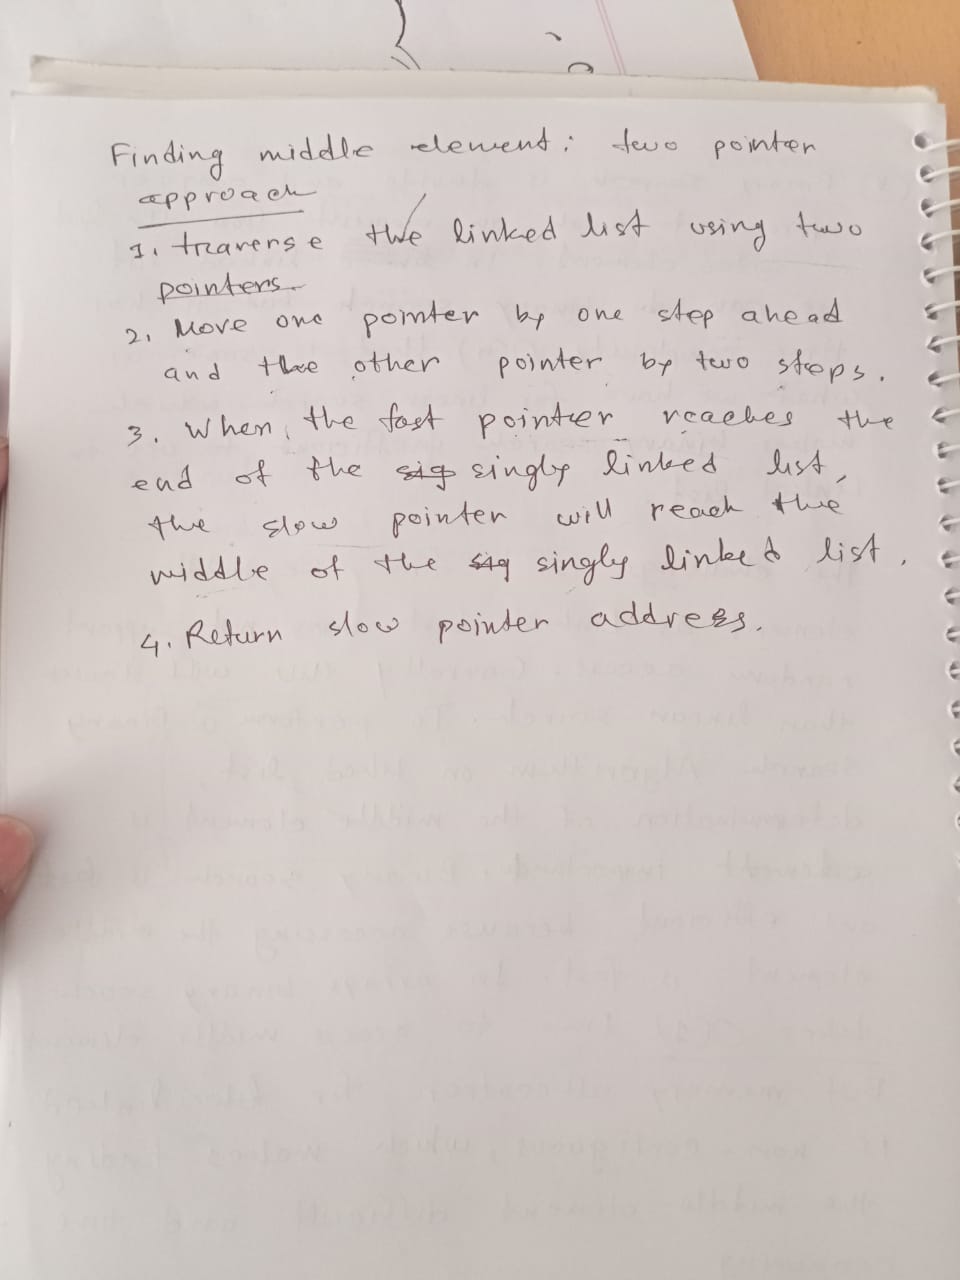 Finding middle element: two pointer
approach
1. traverse the linked list using two
pointers.
2. Move one pointer by one step ahead
and the other pointer by two steps.
3. When, the fast pointer reaches the
end of the sig singly linked list,
the slow pointer will reach the
middle of the sig singly linked list.
4. Return slow pointer address.